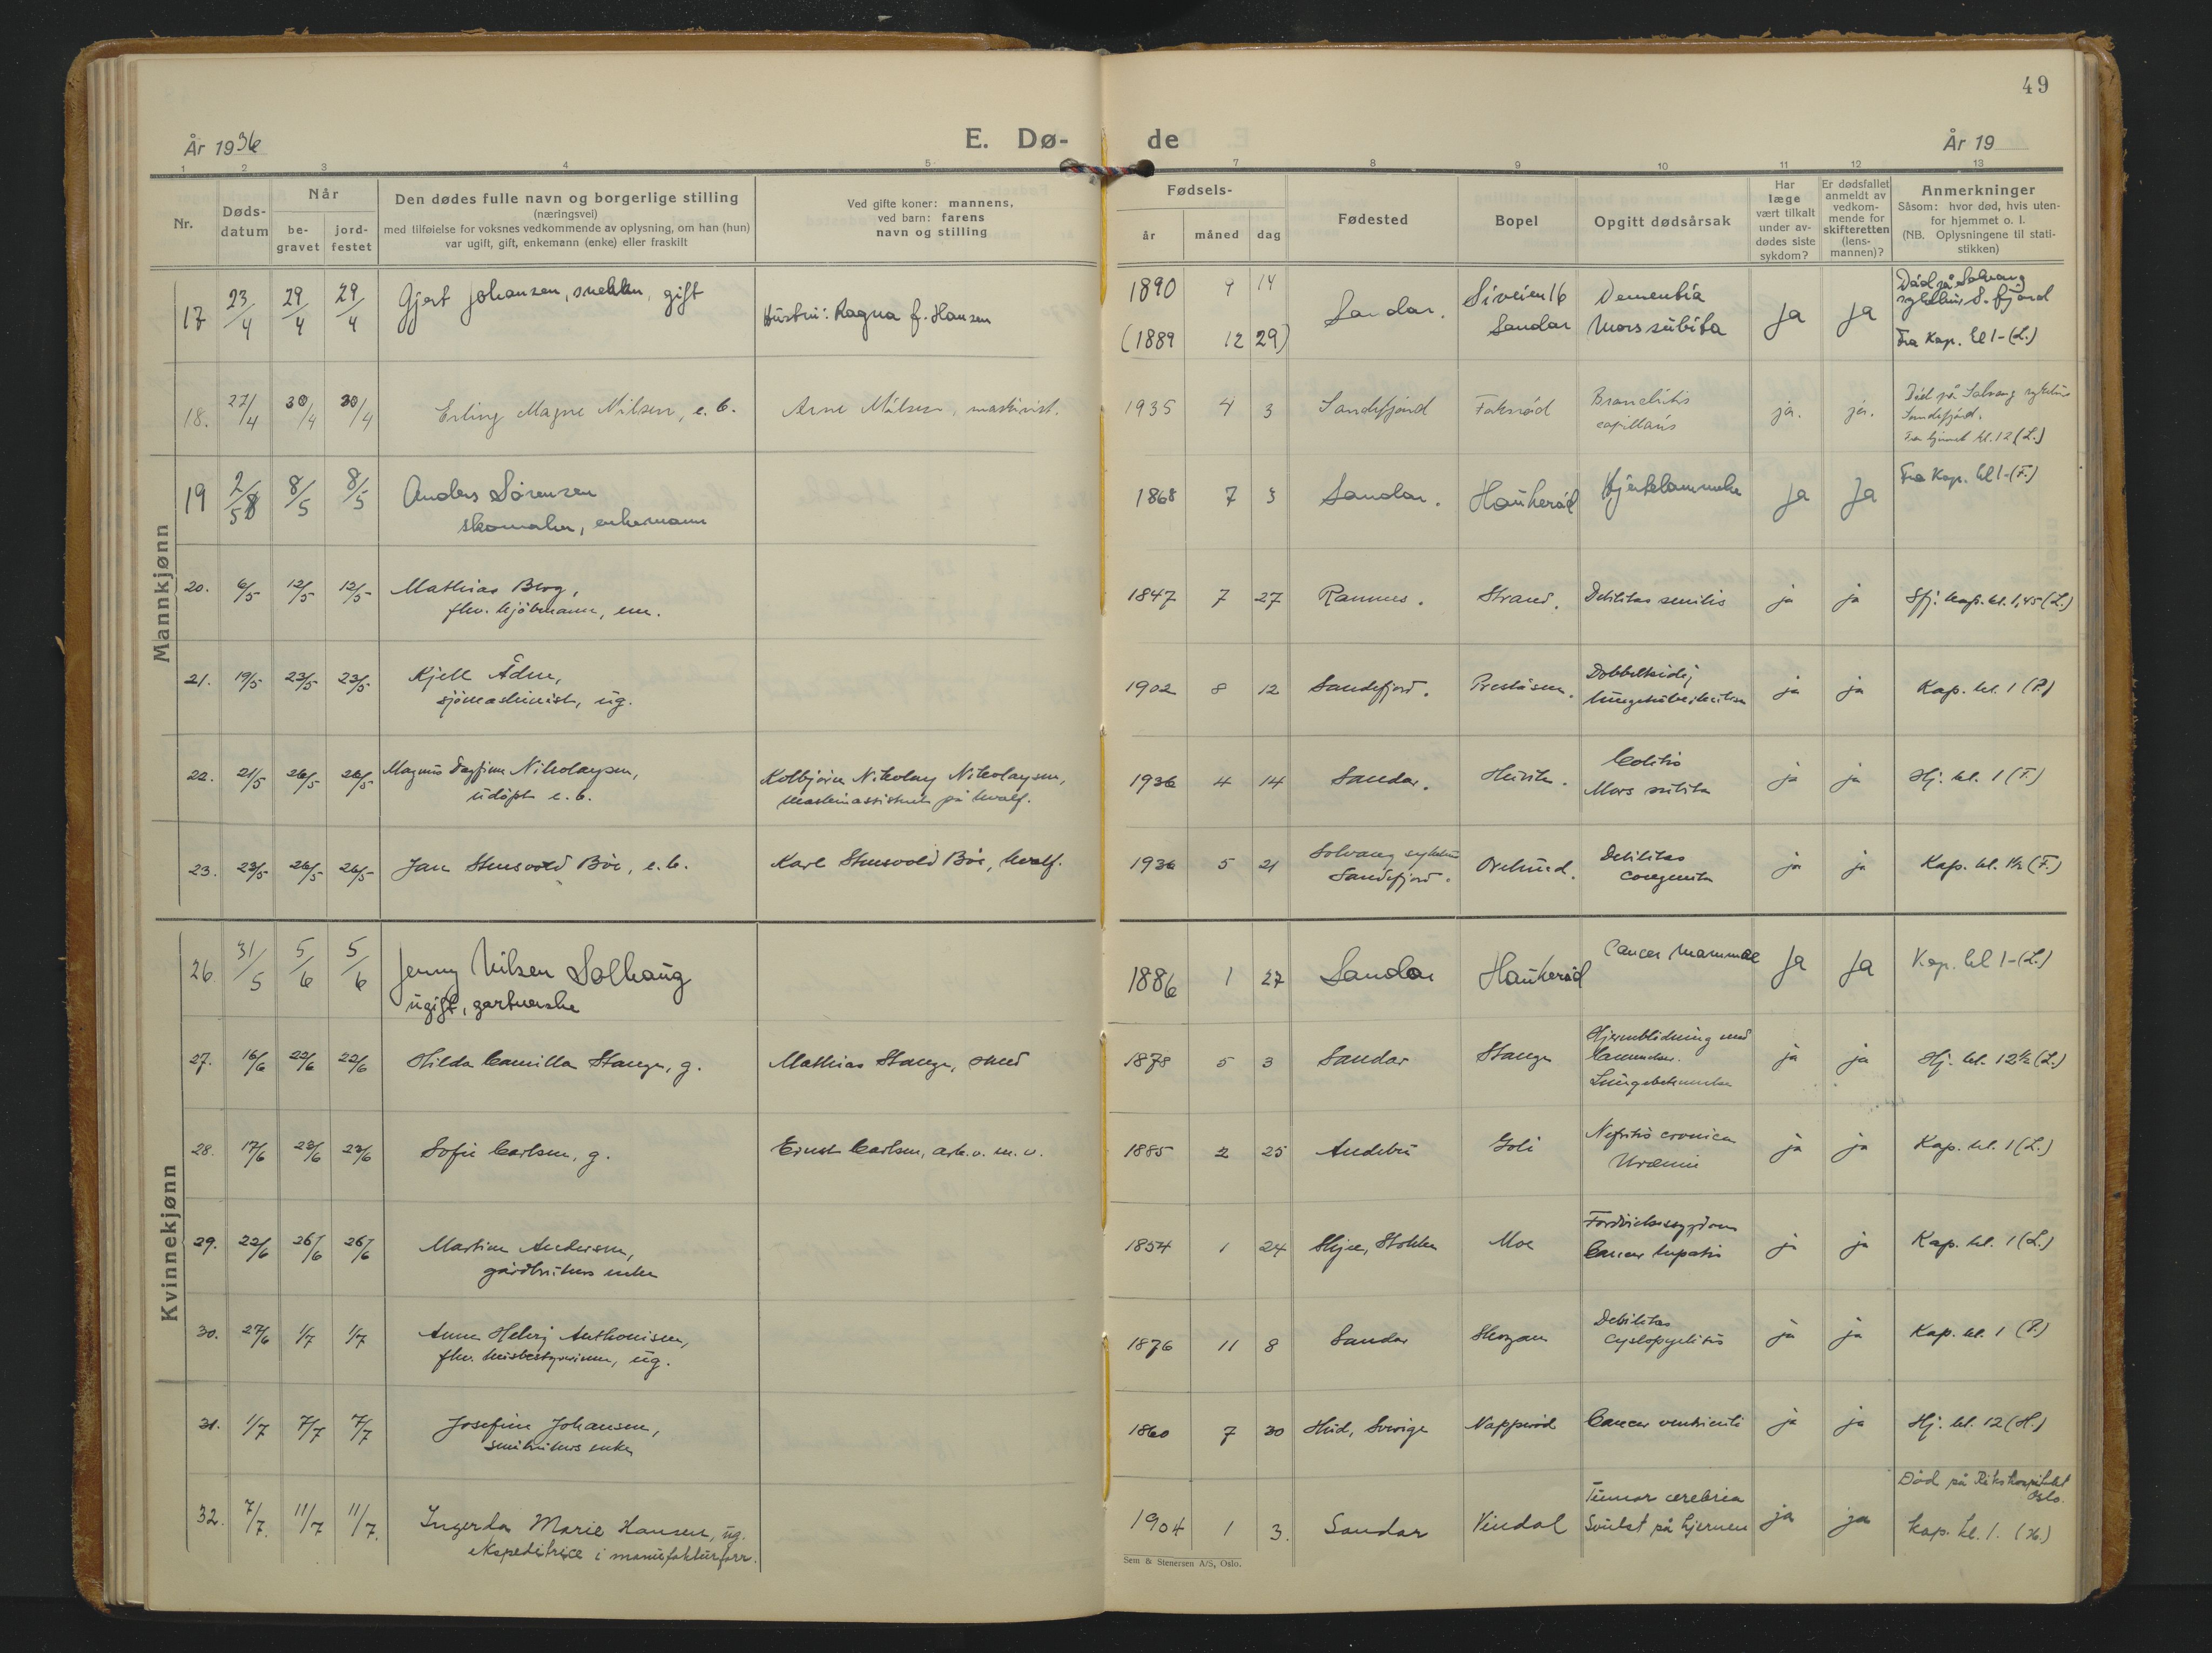 49
År 1936
E. Dø-
de
År 19
1 2 3 4 5 7 8 9 10 11 12 13
Nr.
Døds-
datum
Når
be-
gravet
jord-
festet
Den dødes fulle navn og borgerlige stilling
(næringsvei)
med tilføielse for voksnes vedkommende av oplysning, om han (hun)
var ugift, gift, enkemann (enke) eller fraskilt
Ved gifte koner: mannens,
ved barn: farens
navn og stilling
Fødsels-
år måned dag
Fødested
Bopel
Opgitt dødsårsak
Har
læge
vært tilkalt
under av-
dødes siste
sykdom?
Er dødsfallet
anmeldt av
vedkom-
mende for
skifteretten
(lens-
mannen)?
Anmerkninger
Såsom: hvor død, hvis uten-
for hjemmet o. l.
(NB. Oplysningene til stati-
stikken)
Mannkjønn
17 23/4 29/4 29/4 Gjert Johansen, snekker, gift
Hustru: Ragna f. Hansen
1890 9 14
(1889 12 29)
Sandar.
Siveien 16
Sandar
Dementia
Mors subita
Ja Ja
Død på Solvang
sykehus S.fjord
Fra Kap. kl 1- (L.)
18. 27/4 30/4 30/4 Erling Magne Nilsen, e. b.
Arne Nilsen, maskinist.
1935 4 3 Sandefjord Foksrød
Bronchitis
capillaris
ja. ja.
Død på Solvang sykehus
Sandefjord.
Fra hjemmet kl. 12 (L.)
19 2/5 8/5 8/5 Anders Sørensen
skomaker, enkemann
1868 7 3 Sandar. Haukerød Hjertelammelse Ja Ja
Fra Kap. kl 1- (F.)
20. 6/5 12/5 12/5 Mathias Berg,
fhv. kjøbmann, em.
1847 7 27 Ramnes. Strand. Debilitas senilis ja ja Sfj. kap. kl. 1,45 (L.)
21. 19/5 23/5 23/5 Kjell Ådne,
sjømaskinist, ug.
1902 8 12 Sandefjord. Preståsen.
Dobbeltsidig
lungetuberkulose
ja ja Kap. kl. 1 (P.)
22. 21/5 26/5 26/5 Magnus Dagfinn Nikolaysen,
udøpt e. b.
Kolbjørn Nikolay Nikolaysen,
maskinassistent på hvalf.
1936 4 14 Sandar.
Colitis
Mors subita
ja ja Hj. kl. 1 (F.)
23. 23/5 26/5 26/5 Jan Stensvold Bøe, e. b.
Karl Stensvold Bøe, hvalf.
1936 5 21
Solvang sykehus
Sandefjord.
Debilitas
congenita
ja ja Kap. kl. 1½ (F.)
Kvinnekjønn
26 31/5 5/6 5/6 Jenny Nilsen Solhaug
ugift, gartnerske
1886 1 27 Sandar Haukerød Cancer Mammae Ja Ja Kap. kl 1- (L.)
27. 16/6 22/6 22/6 Hilda Camilla Stange, g.
Mathias Stange, smed
1878 5 3 Sandar Stange
Hjerneblødning med
Lammelser.
Lungebetennelse
ja ja Hj. kl. 12½ (L.)
28. 17/6 23/6 23/6 Sofie Carlsen, g.
Ernst Carlsen, arb. v. m. v.
1885 2 25 Andebu Goli
Nefritis cronica
Uræmie
ja ja Kap. kl. 1 (L.)
29. 22/6 26/6 26/6 Martine Andersen,
gårdbrukers enke
1854 1 24 Skjee, Stokke Moe
Fordøielsessygdom
Cancer hepatis
ja ja Kap. kl. 1 (L.)
30. 27/6 1/7 1/7 Anne Helvig Anthonisen,
fhv. husbestyrerinne, ug.
1876 11 8 Sandar Skogan
Debilitas
Cystopyelitis
ja ja Kap. kl. 1 (P.)
31. 1/7 7/7 7/7 Josefine Johansen,
småbrukers enke
1860 7 30 Hud, Sverige Napperød Cancer ventriculi ja ja Hj. kl. 12 (H.)
32. 7/7. 11/7 11/7. Ingerda Marie Hansen, ug.
ekspeditrice i manufakturforr.
1904 1 3. Sandar Vindal
Tumor cerebria
Svulst på hjernen
ja ja
Død på Rikshospitalet
Oslo.
Kap. kl. 1. (H.)
Sem & Stenersen A/S, Oslo.